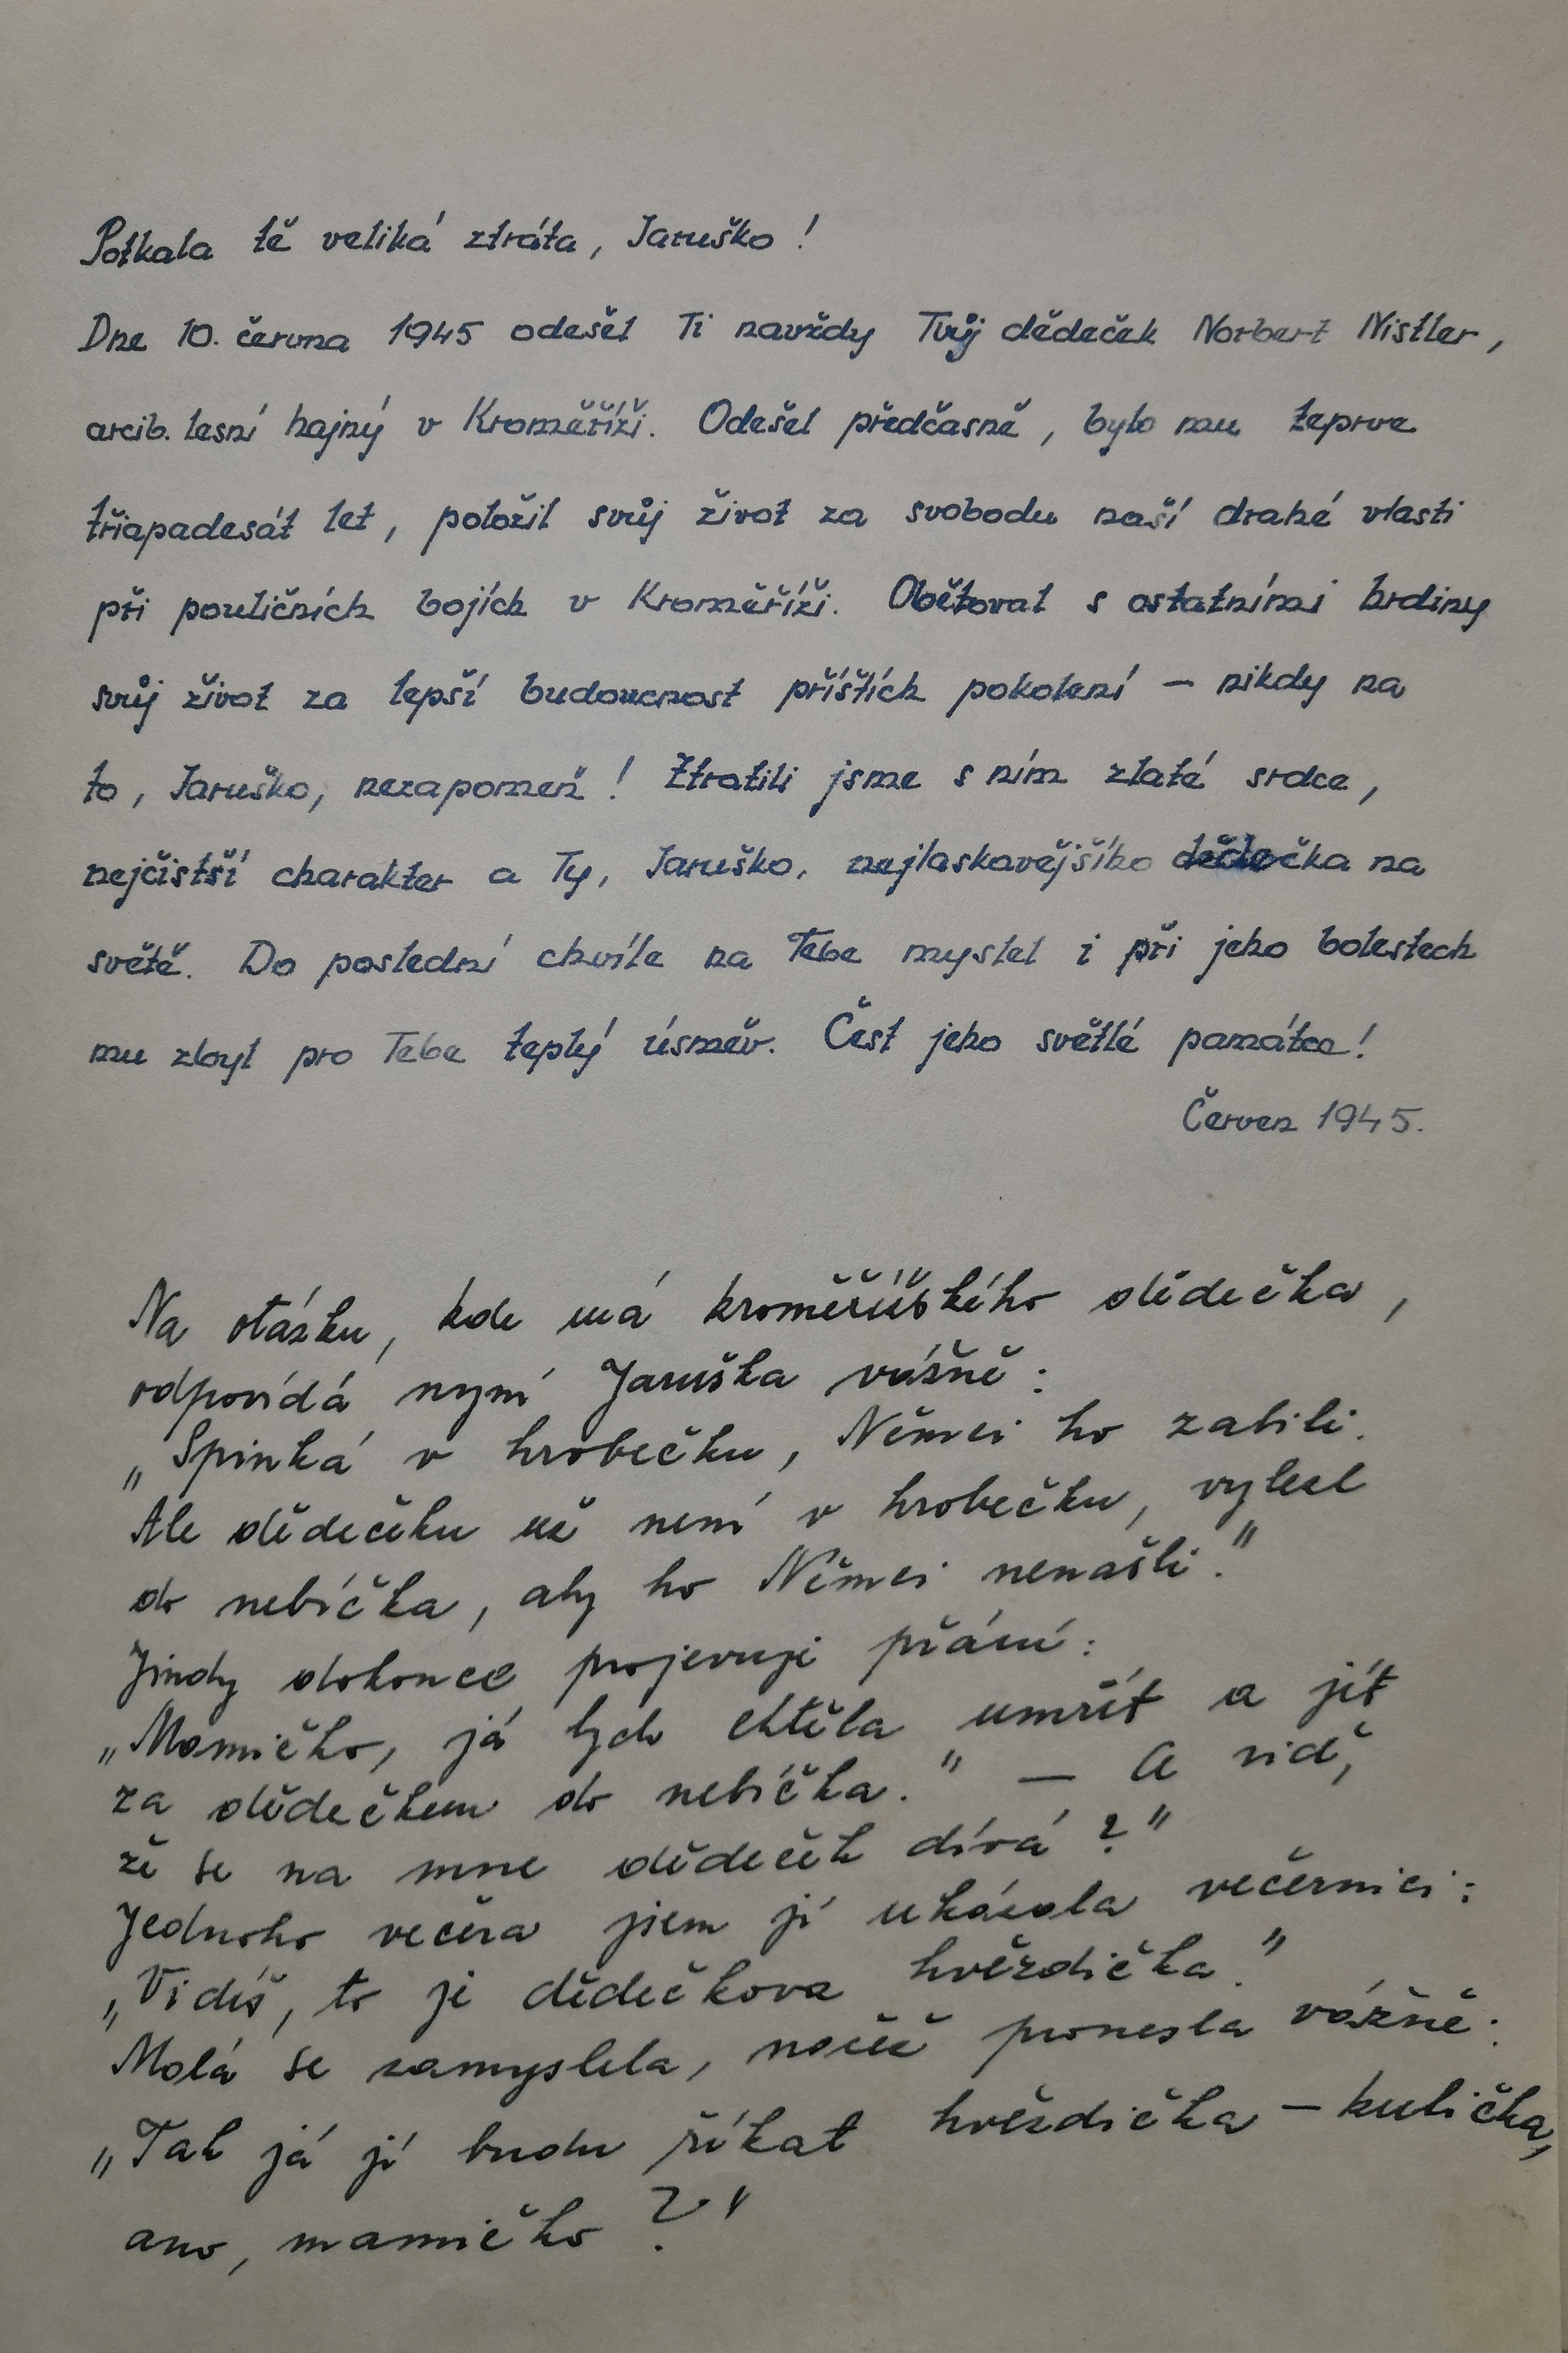 Potkala tě veliká ztráta, Jaruško!
Dne 10. června 1945 odešel Ti navždy Tvůj dědeček Norbert Nistler,
arcib. lesní hajný v Kroměříži. Odešel předčasně, bylo mu teprve
třiapadesát let, položil svůj život za svobodu naší drahé vlasti
při pouličních bojích v Kroměříži. Obětoval s ostatními hrdiny
svůj život za lepší budoucnost příštích pokolení – nikdy na
to, Jaruško, nezapomeň! Ztratili jsme s ním zlaté srdce,
nejčistší charakter a Ty, Jaruško, nejlaskavějšího dědečka na
světě. Do poslední chvíle na Tebe myslel i při jeho bolestech
mu zbyl pro Tebe teplý úsměv. Čest jeho světlé památce!
Červen 1945.
Na otázku, kde má kroměřížského dědečka,
odpovídá nyní Jaruška vážně:
„Spinká v hrobečku, Němci ho zabili.
Ale dědečku už není v hrobečku, vylezl
do nebíčka, aby ho Němci nenašli."
Jindy dokonce projevuje přání:
„Mamičko, já bych chtěla umřít a jít
za dědečkem do nebíčka." – A viď,
že se na mne dědeček dívá?"
Jednoho večera jsem jí ukázala večernici:
„Vidíš, to je dědečkova hvězdička."
Malá se zamyslela, načež pronesla vážně:
„Tak já jí budu říkat hvězdička – kulička,
ano, mamičko?"